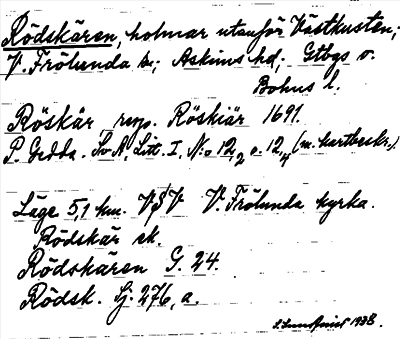 Rödskären, holmar utanför Västkusten;
V. Frölunda sn; Askims hd; Gtbgs o.
Bohus l.
Röskär resp. Röskiär 1691.
P. Gedda. Sv A, Litt. I, No 12,2 o. 12,4 (m. kartbeskr.)
Läge 5,1 km. VSV V. Frölunda kyrka.
Rödskär ek.
Rödskären G. 24.
Rödsk. Sj. 276, a.
1938.